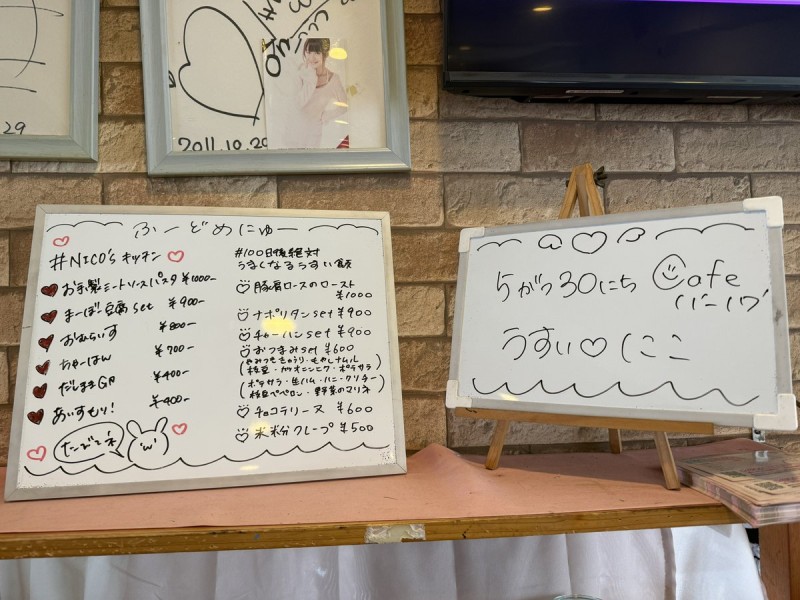 29
2011.10.29
ふーどめにゅー
#NICO's キッチン
お手製ミートソースパスタ ¥1000-
まーぼ豆腐 set ¥900-
おむらいす ¥800-
ちゃーはん ¥700-
だしまき ¥400-
あいすもり! ¥400-
たべてネ
#100日後絶対
うまくなるうすい飯
豚肩ロースのロースト
¥1000
ナポリタン set ¥900
チャーハン set ¥900
おつまみ set ¥600
(やみつききゅうり・もやしナムル
枝豆・ ポテサラ)
(ポテサラ・生ハム・ハニークリチー
枝豆ペペロン・野菜のマリネ)
チョコテリーヌ ¥600
米粉クレープ ¥500
5がつ30にち Cafe
うすい♡にこ